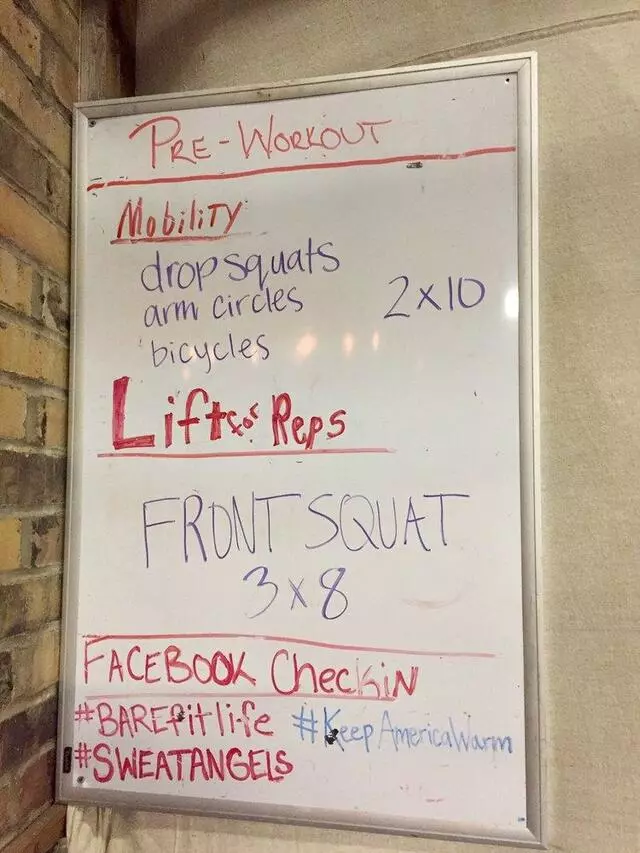 PRE-WORKOUT
MobiliTY
drop squats
arm circles 2x10
bicycles
Lift for Reps
FRONT SQUAT
3x8
FACEBOOK CheckiN
#BAREfitlife #KeepAmericaWarm
#SWEATANGELS